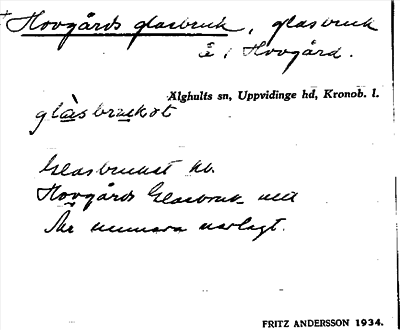 + Hovgårds glasbruk, glasbruk
å i Hovgård.
Älghults sn, Uppvidinge hd, Kronob. l.
glàsbruket
Glasbruket
Hovgårds Glasbruk
numera nerlagt.
FRITZ ANDERSSON 1934.